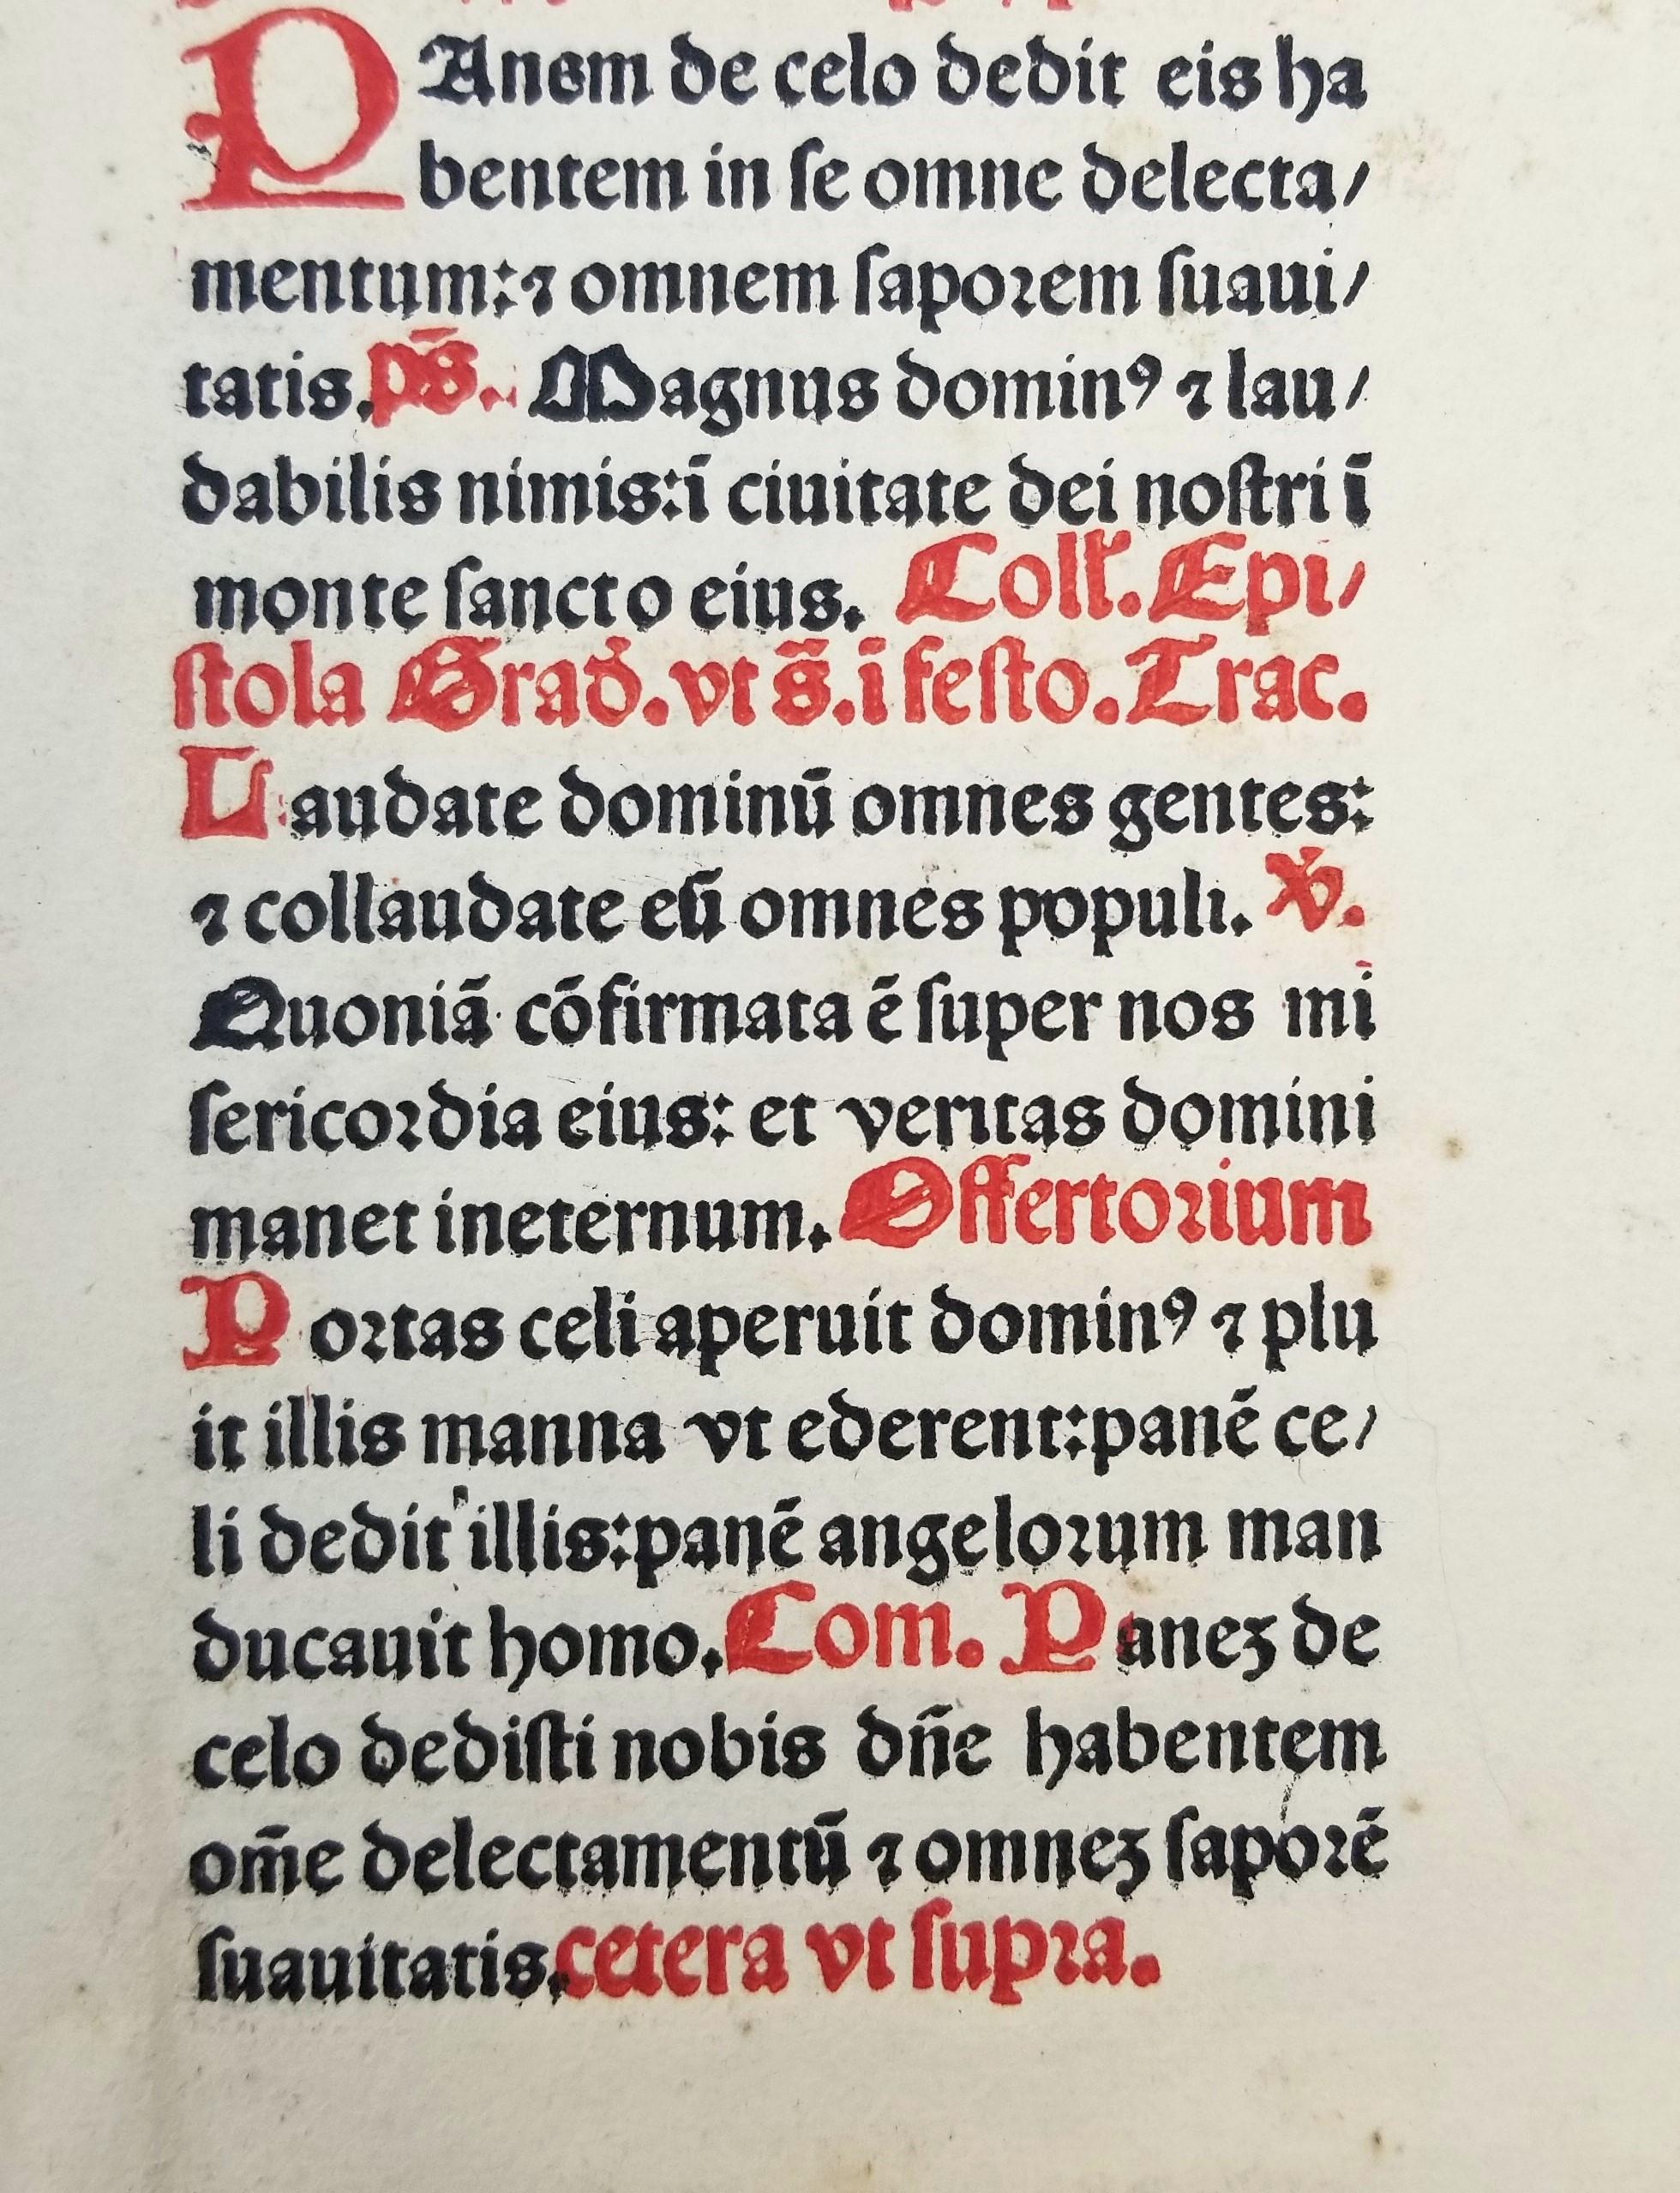 PAnem de celo dedit eis ha
bentem in ſe omne delecta/
mentum:⁊ omnem ſapoꝛem ſuaui/
tatis.ps̄. Magnus dominꝰ ⁊ lau/
dabilis nimis:ī ciuitate dei noſtri ī
monte ſancto eius. Coll'. Epi/
ſtola Grad'. vt s̄. i feſto. Trac.
Laudate dominū omnes gentes:
⁊ collaudate eū omnes populi. ℣.
Quoniā cōfirmata ē ſuper nos mi
ſericoꝛdia eius: et veritas domini
manet ineternum. Offertoꝛium
Poꝛtas celi aperuit dominꝰ ⁊ plu
it illis manna vt ederent:panē ce/
li dedit illis:panē angeloꝛum man
ducauit homo. Com. Paneꝫ de
celo dediſti nobis dn̄e habentem
om̄e delectamentū ⁊ omneꝫ ſapoꝛē
ſuauitatis.cetera vt ſupꝛa.